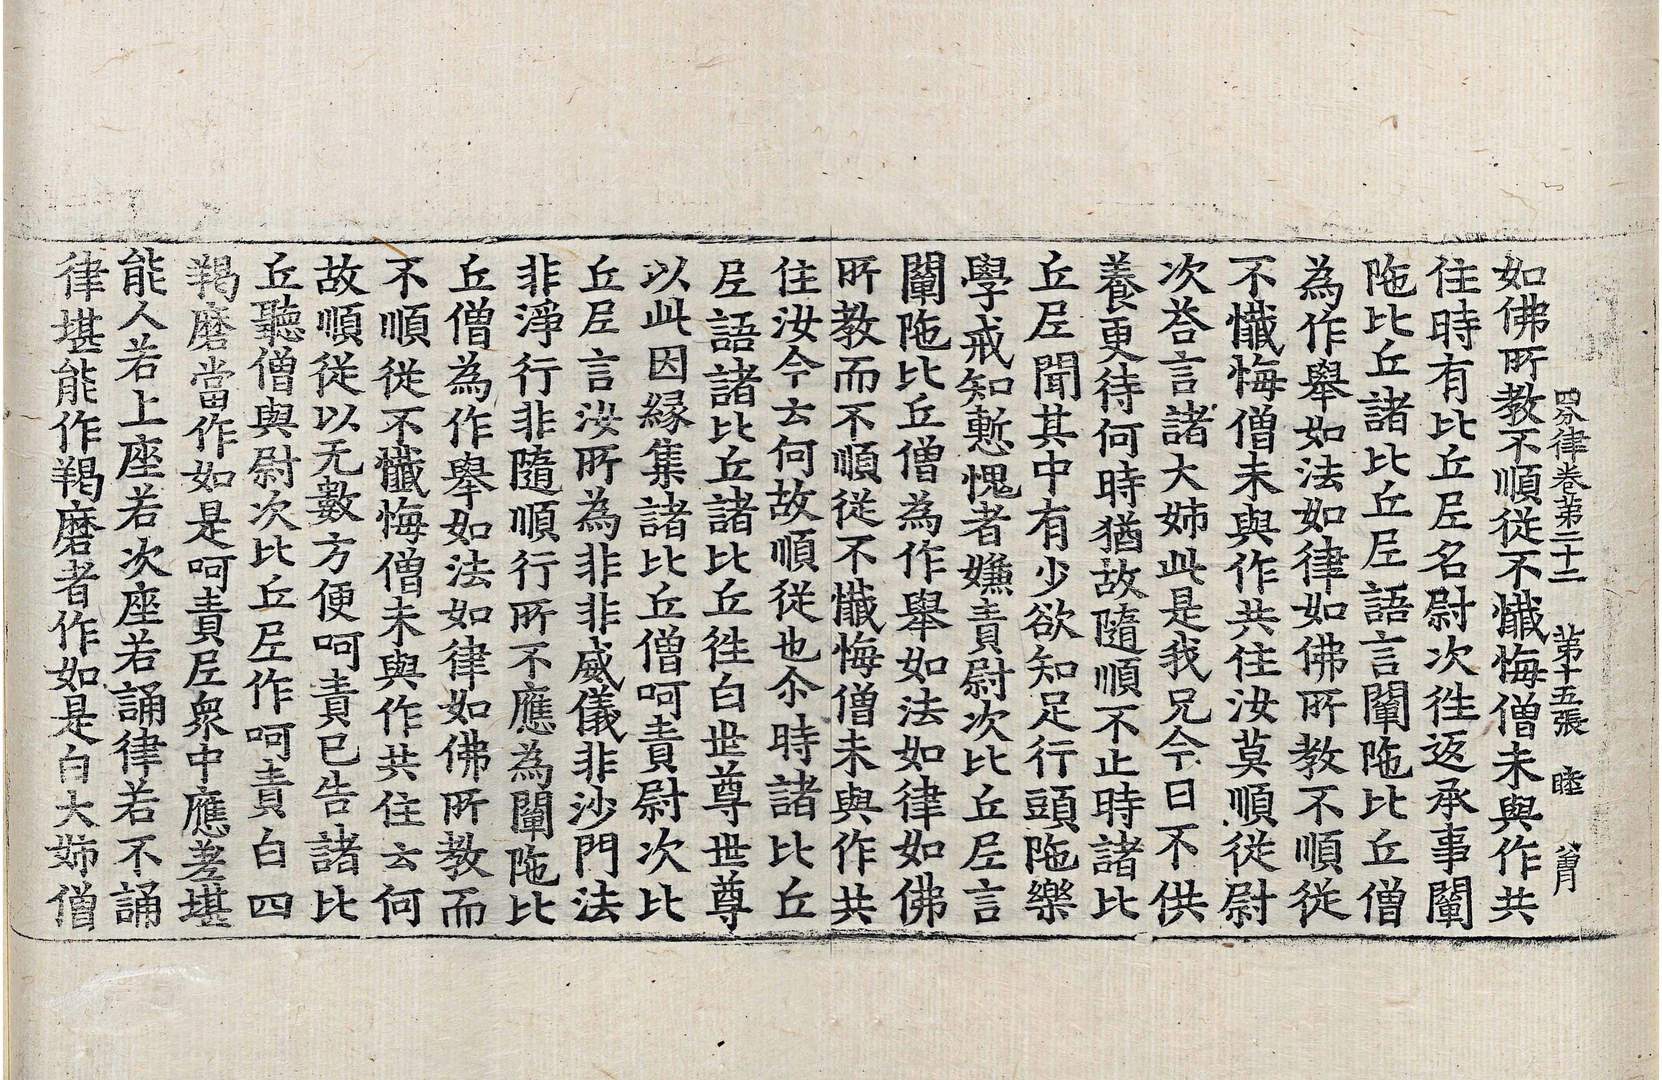 四分律卷第二十二 第十五張 睦
如佛所教不順從不懺悔僧未與作共
住時有比丘尼名尉次往返承事闡
陁比丘諸比丘尼語言闡陁比丘僧
為作舉如法如律如佛所教不順從
不懺悔僧未與作共住汝莫順從尉
次荅言諸大姊此是我兄今日不供
養更待何時猶故隨順不止時諸比
丘尼聞其中有少欲知足行頭陁樂
學戒知慙愧者嫌責尉次比丘尼言
闡陁比丘僧為作舉如法如律如佛
所教而不順從不懺悔僧未與作共
住汝今云何故順從也尒時諸比丘
尼語諸比丘諸比丘往白世尊世尊
以此因緣集諸比丘僧呵責尉次比
丘尼言汝所為非非威儀非沙門法
非淨行非隨順行所不應為闡陁比
丘僧為作舉如法如律如佛所教而
不順從不懺悔僧未與作共住云何
故順從以无數方便呵責已告諸比
丘聽僧與尉次比丘尼作呵責白四
羯磨當作如是呵責尼衆中應差堪
能人若上座若次座若誦律若不誦
律堪能作羯磨者作如是白大姊僧